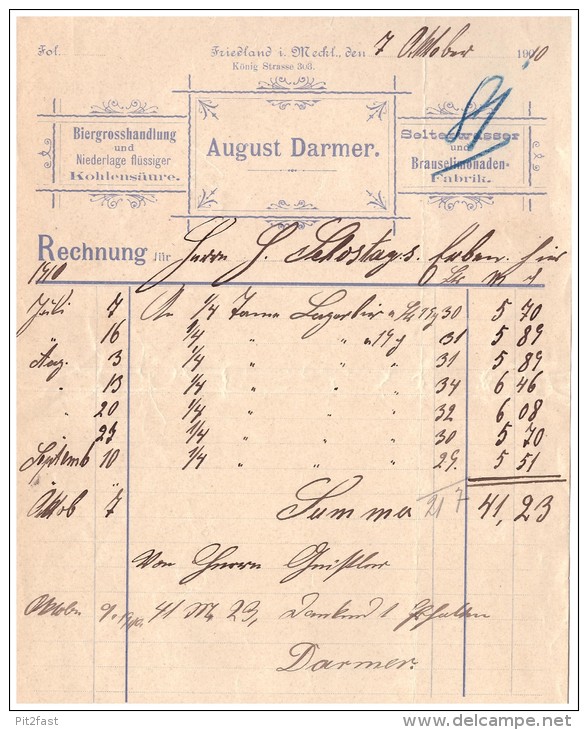 Fol.
Friedland i. Meckl., den 7 Oktober 1910
König Strasse 303.
81
Biergrosshandlung
und
Niederlage flüssiger
Kohlensäure.
August Darmer.
Selterwasser
und
Brauselimonaden-
Fabrik.
Rechnung für Herrn H. Erben. hier
1910 Ltr M d
Juli 7 An 1/4 Tonne Lagerbier a Ltr 19 d 30 5 70
" 16 1/4 " " a 19 d 31 5 89
Aug. 3 1/4 " " " 31 5 89
" 13 1/4 " " " 34 6 46
" 20 1/4 " " " 32 6 08
" 23 1/4 " " " 30 5 70
Septemb 10 1/4 " " " 29. 5 51
Oktob 7 Summa 217 41,23
Von Herrn
Oktober 9. 41 M 23, Dankend Erhalten
Darmer.
Pit2fast
www.delcampe.net